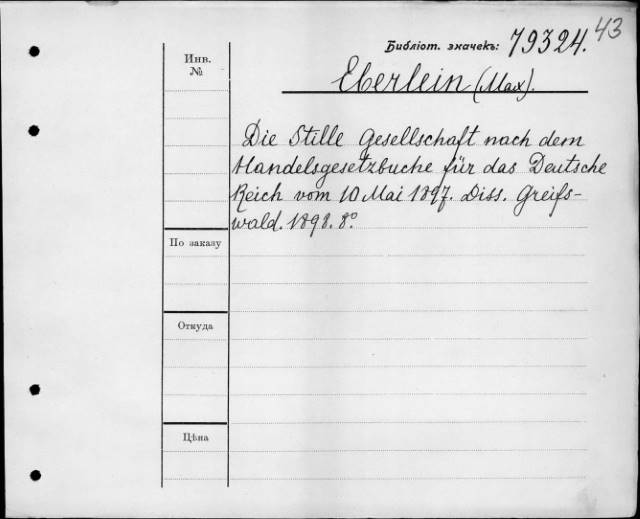 43
Библіот. значекъ: 79324.
Инв.
№
Eberlein (Max).
Die Stille Gesellschaft nach dem
Handelsgesetzbuche für das Deutsche
Reich vom 10 Mai 1897. Diss. Greifs-
wald. 1898. 8°.
По заказу
Откуда
Цѣна